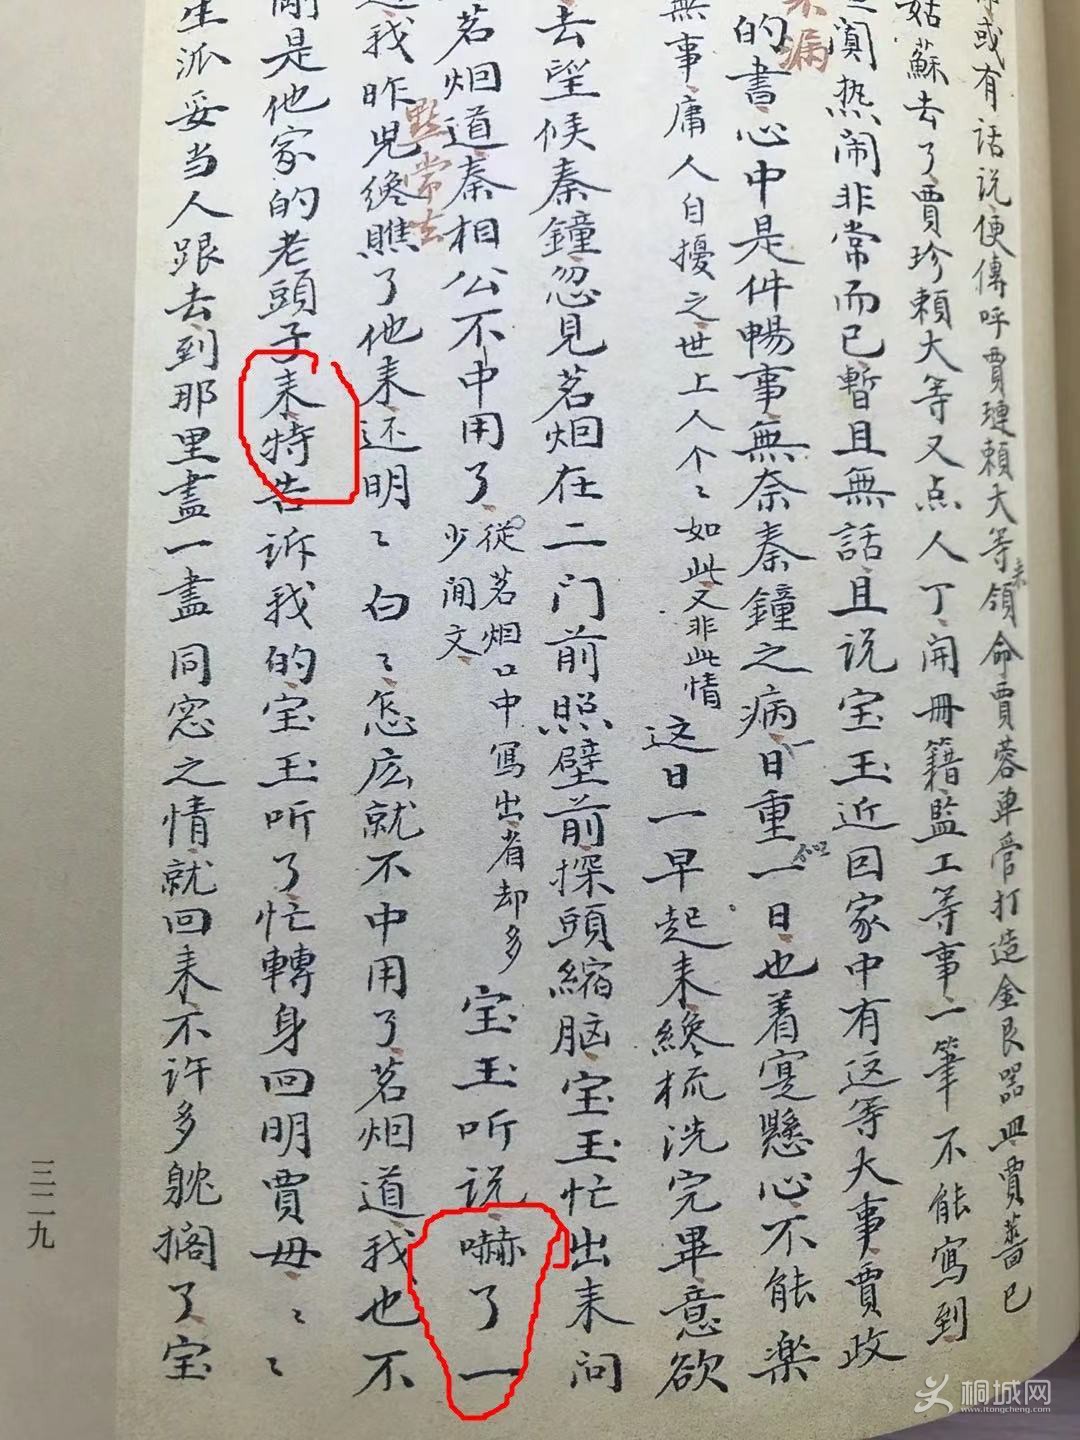 你或有话说便傳呼賈璉賴大等来領命賈蓉单管打造金艮器皿賈薔已
姑蘇去了賈珍賴大等又点人丁開册籍監工等事一筆不能寫到
闐热闹非常而已暫且無話且说宝玉近回家中有这等大事賈政
不漏
的書心中是件暢事無奈秦鐘之病日重一日也着寔懸心不能楽
無事庸人自擾之世上人个〻如此又非此情
这日一早起来纔梳洗完畢意欲
去望候秦鐘忽見茗烟在二门前照壁前探頭縮脑宝玉忙出来问
茗烟道秦相公不中用了
從茗烟口中寫出省却多
少閒文
宝玉听说嚇了一
點常去
我昨兒纔瞧了他来还明〻白〻怎庅就不中用了茗烟道我也不
剛是他家的老頭子来特告訴我的宝玉听了忙轉身回明賈毋〻〻
生派妥当人跟去到那里盡一盡同窓之情就回来不许多躭擱了宝
三二九
桐城网
www.itongcheng.com